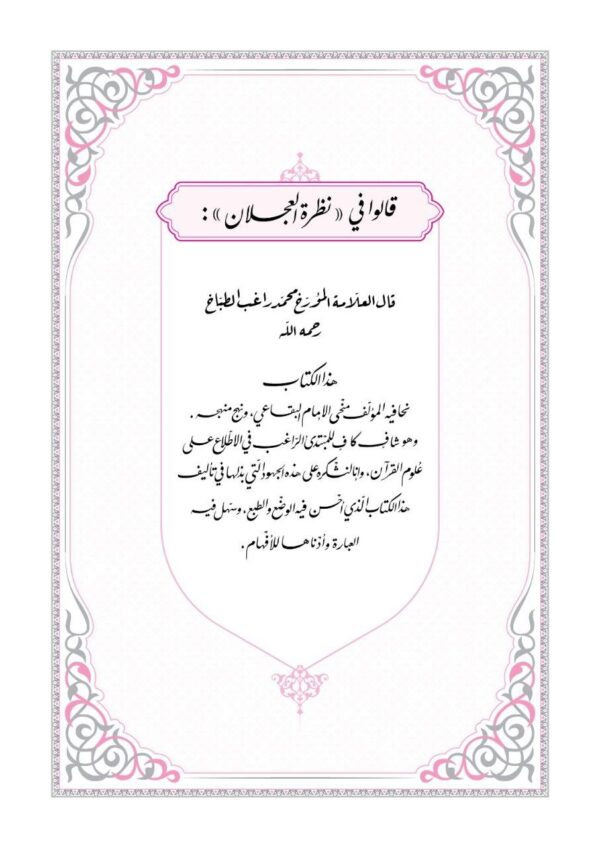 قالوا في «نظرة العجلان»:
قال العلّامة المؤرخ محمد راغب الطبّاخ
رحمه الله
هذا الكتاب
نحا فيه المؤلّف منحى الإمام البقاعي، ونهج منهجه.
وهو شافٍ كافٍ للمبتدئ الرّاغب في الاطّلاع على
علوم القرآن، وإنا لنشكره على هذه الجهود الّتي بذلها في تأليف
هذا الكتاب الّذي أحسن فيه الوضع والطبع، وسهّل فيه
العبارة وأدناها للأفهام.